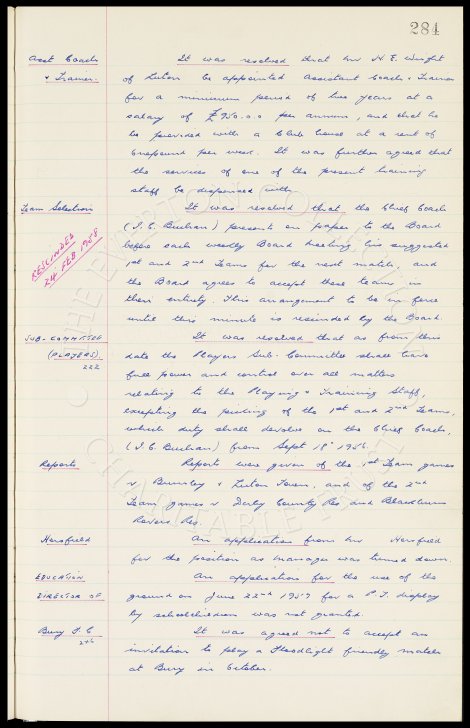 284
Asst Coach
& Trainer.
It was resolved that Mr H. E. Wright
of Luton be appointed Assistant Coach & Trainer
for a minimum period of two years at a
salary of £950.0.0 per annum, and that he
be provided with a Club house at a rent of
One pound per week. It was further agreed that
the services of one of the present training
staff be dispensed with
Team Selection
It was resolved that the Chief Coach
(I. C. Buchan) presents on paper to the Board
before each weekly Board Meeting his suggested
1st and 2nd Teams for the next match and
the Board agrees to accept these teams in
their entirety. This arrangement to be in force
until this minute is rescinded by the Board.
RESCINDED
24 FEB 1958
SUB-COMMITTEE
(PLAYERS)
222
It was resolved that as from this
date the Players Sub-Committee shall have
full power and control over all matters
relating to the Playing & Training Staff,
excepting the picking of the 1st and 2nd Teams,
which duty shall devolve on the Chief Coach,
(I. C. Buchan) from Sept 18th 1956.
Reports
Reports were given of the 1st Team games
v Burnley & Luton Town, and of the 2nd
Team games v Derby County Res and Blackburn
Rovers Res.
Horsfield
An application from Mr Horsfield
for the position as manager was turned down.
EDUCATION
DIRECTOR OF
An application for the use of the
ground on June 22nd 1957 for a P.T. display
by schoolchildren was not granted.
Bury F.C
246
It was agreed not to accept an
invitation to play a Floodlight friendly match
at Bury in October.